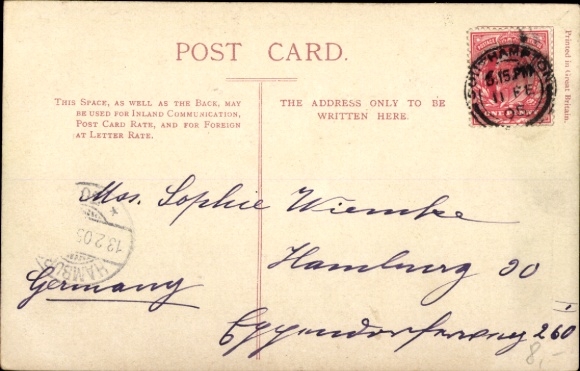 POST CARD.
THIS SPACE, AS WELL AS THE BACK, MAY
BE USED FOR INLAND COMMUNICATION,
POST CARD RATE, AND FOR FOREIGN
AT LETTER RATE.
THE ADDRESS ONLY TO BE
WRITTEN HERE.
Printed in Great Britain.
SOUTHAMPTON
6.15 PM
11 FE
05
HAMBURG
13.2.05
Mrs. Sophie Wiemke
Hamburg 20
Germany
Eppendorferweg 260
I
8,-